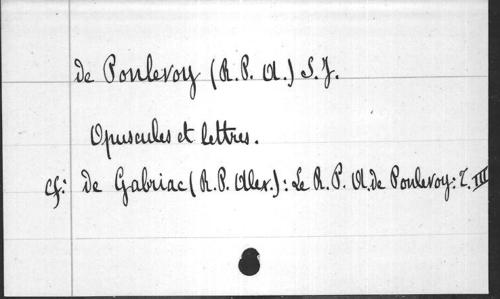 de Ponlevoy (R.P. A.) S.J.
Opuscules et lettres.
cf: de Gabriac (R.P. Alex.): Le R.P. A. de Ponlevoy: T. III